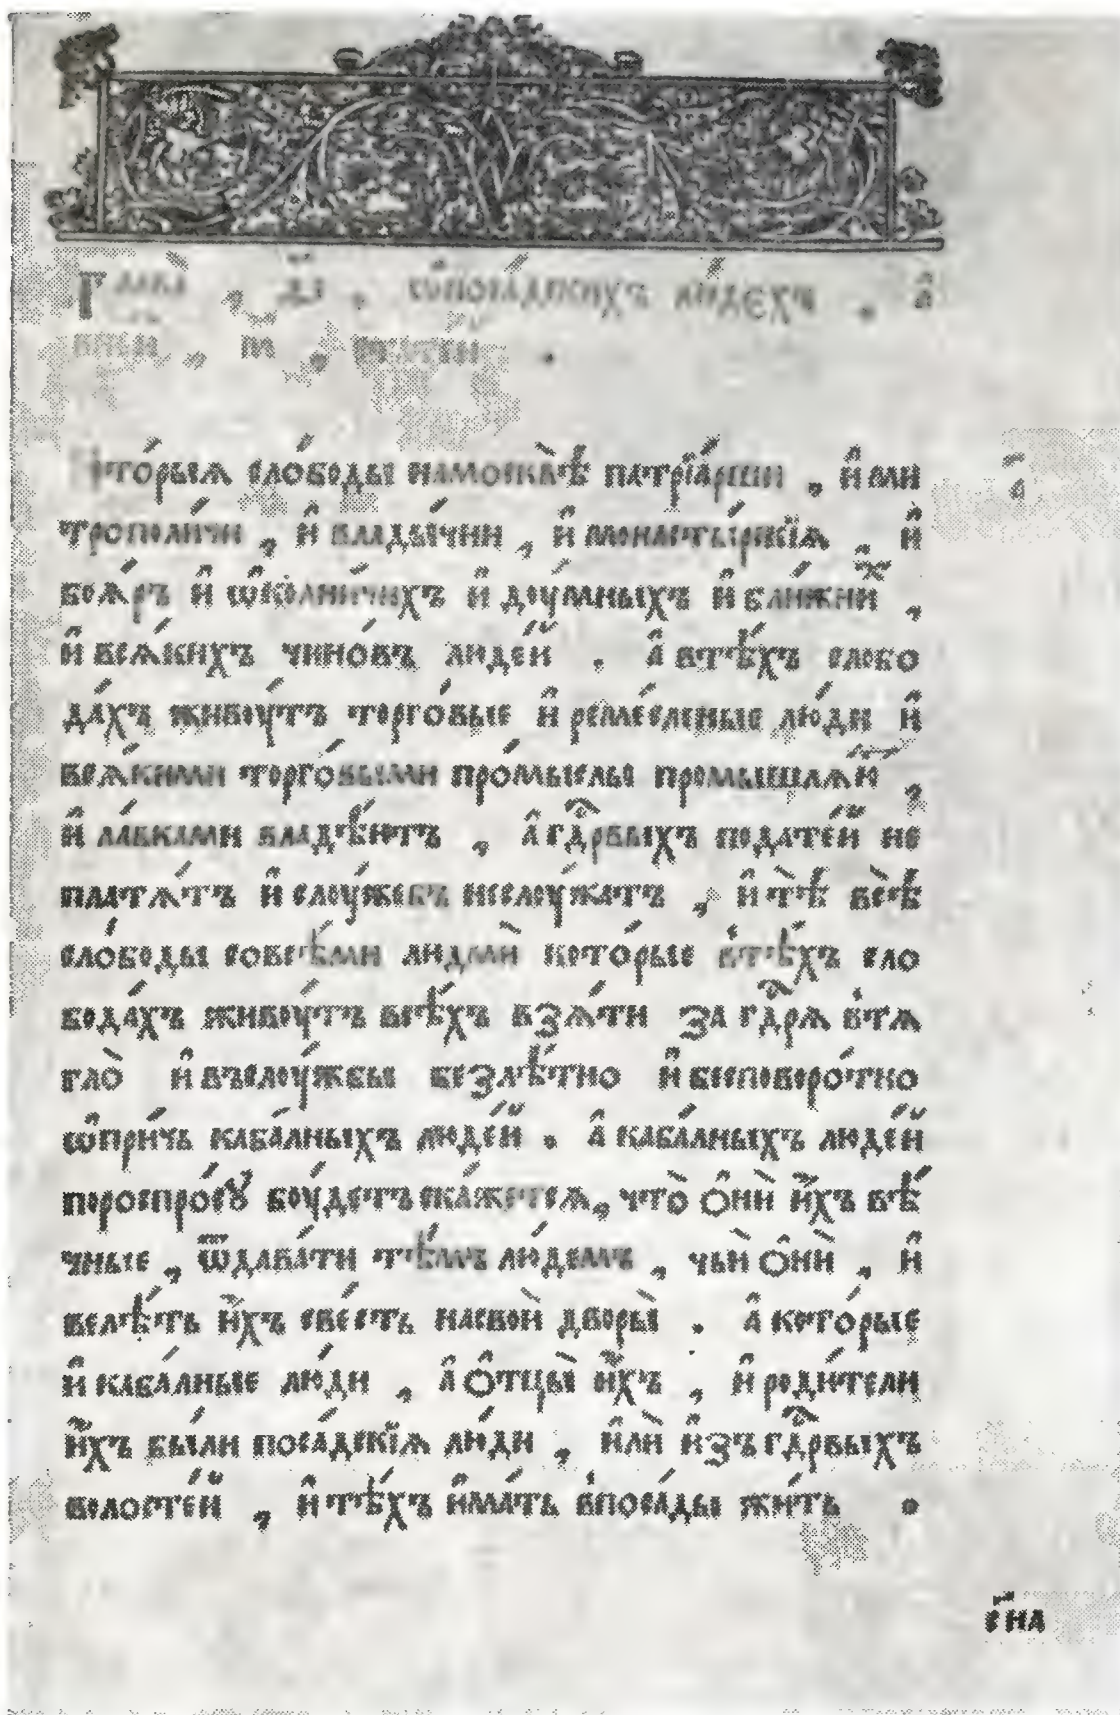 Глава̀ , ѳ҃і . ѡ҆поса́дскихъ лю́дєхъ . а҆
вне́й , м҃ , стате́й .
Кото́рыѧ сло́боды намосквѣ̀ патрїа́рши , и҆ ми
трополи́чи , и҆ влады́чни , и҆ монасты́рскїѧ , и҆
боѧ́ръ и҆ ѡ҆ко́лничихъ и҆ доу́мныхъ и҆ бли́жниⷯ ,
и҆ всѧ́кихъ чино́въ люде́й . а҆ втѣ́хъ слобо
да́хъ живоу́тъ торго́выє и҆ реме́слєныє лю́ди и҆
всѧ́кими торго́выми про́мыслы промышлѧ́юⷮ ,
и҆ ла́вками владѣ́ютъ , а҆ гд҇рвыхъ подате́й не
платѧ́тъ и҆ слоу́жебъ неслоу́жатъ , и҆ тѣ̀ всѣ̀
сло́боды совсѣ́ми людмѝ кото́рыє втѣ́хъ сло
бода́хъ живоу́тъ всѣ́хъ взѧ́ти за гд҇рѧ втѧ
гло̀ и҆ въслоу́жбы безлѣ́тно и҆ бесповоро́тно
ѡ҆при́чь каба́лныхъ люде́й . а҆ каба́лныхъ люде́й
пороспро́сꙋ боу́детъ ска́жетсѧ, что̀ ѻ҆нѝ и҆́хъ вѣ́
чныє , ѿдава́ти тѣ́мъ лю́демъ , чьѝ ѻ҆нѝ , и҆
велѣ́ть и҆́хъ све́сть насвоѝ дворы̀ . а҆ кото́рыє
и҆ каба́лныє лю́ди , а҆ ѻ҆тцы̀ и҆́хъ , и҆ роди́тели
и҆́хъ бы́ли поса́дскїѧ лю́ди , и҆лѝ и҆зъ гд҇рвыхъ
волосте́й , и҆ тѣ́хъ и҆ма́ть впоса́ды жи́ть .
а҃
с҃на